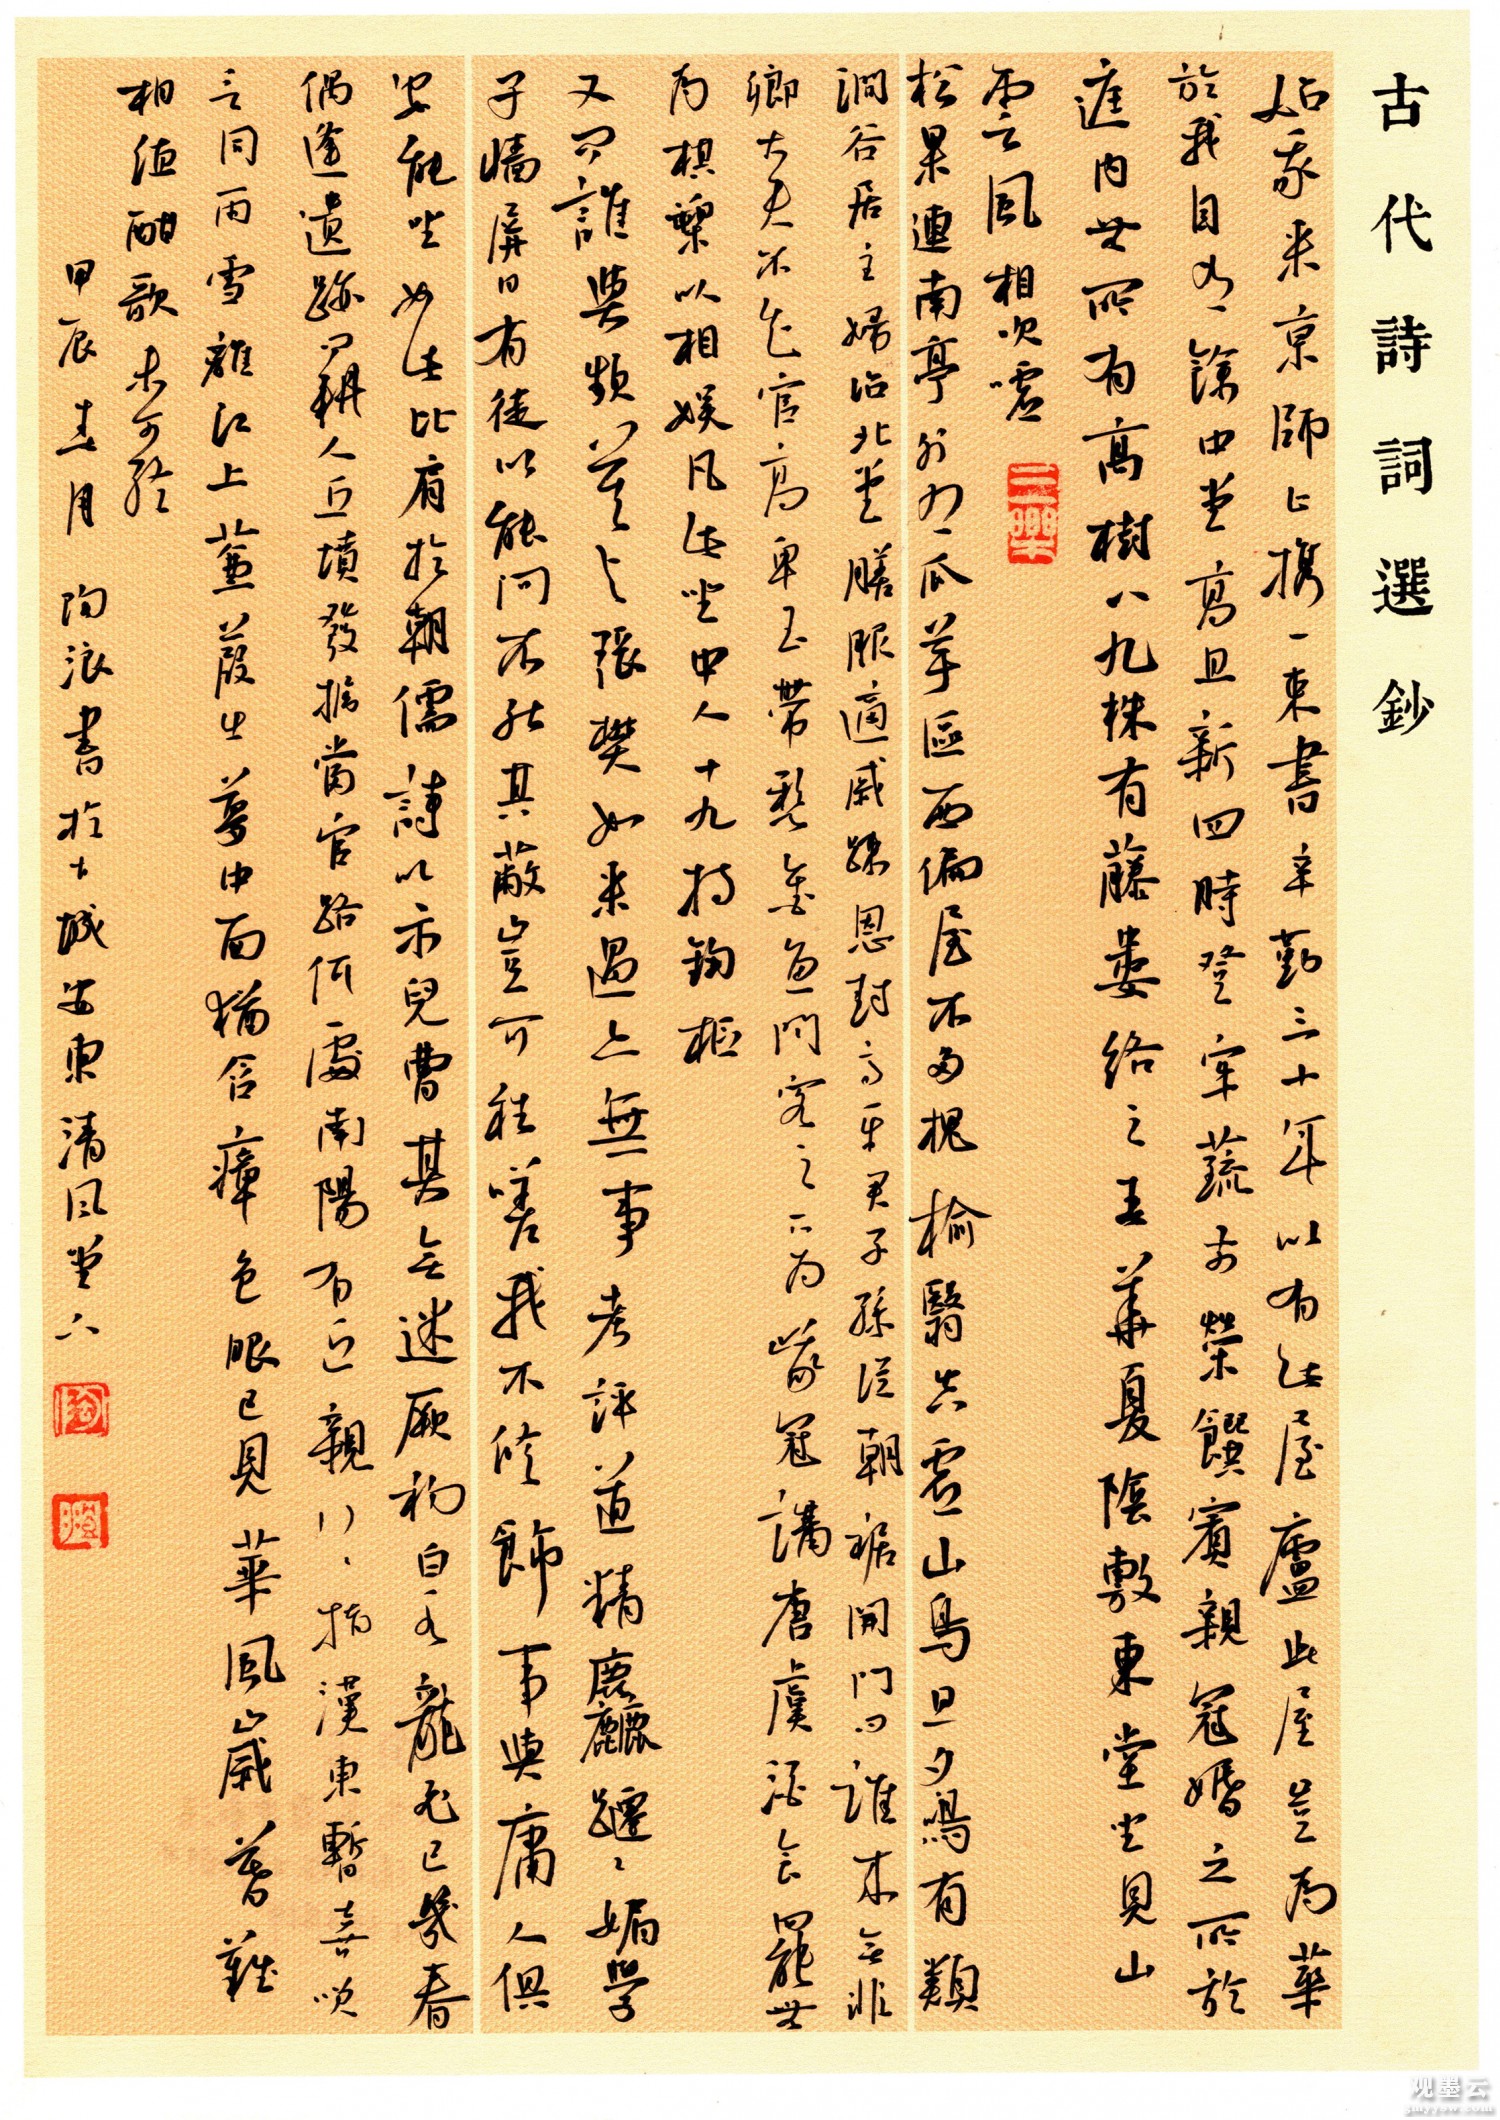 古代詩詞選鈔
始我来京師止携一束書辛勤三十年以有此屋廬此屋豈為華
於我自有餘中堂高且新四時登牢蔬前榮饌賓親冠婚之所於
庭内无所有高樹八九株有藤婁絡之春華夏陰敷東堂坐見山
雲風相吹嘘
松果連南亭外有瓜芋區西偏屋不多槐榆翳空虛山鳥旦夕鳴有類
澗谷居主婦治北堂膳服適戚踈恩封高平君子孫從朝裾開門問誰來無非
卿大夫不知官高卑玉帶懸金魚問客之所為峩冠講唐虞酒食罷无
為棋槊以相娱凡此坐中人十九持鈞樞
又問誰與頻莫與張樊如来過亦無事考評道精麤躚々媚學
子墻屏日有徒以能問不能其蔽豈可祛嗟我不修飾事與庸人俱
安能坐如此比肩於朝儒詩以示兒曹其無迷厥初白水龍飛已幾春
偶逢遺跡問耕人丘墳發掘當官路何處南陽有近親行々指漢東暫喜笑
言同雨雪離江上蒹葭出夢中面猶含瘴色眼已見華風歲暮難
相值酣歌未可終
甲辰春月 陶浪書於古城安東清風堂下
三樂
陶
观墨云
gmyyow.com